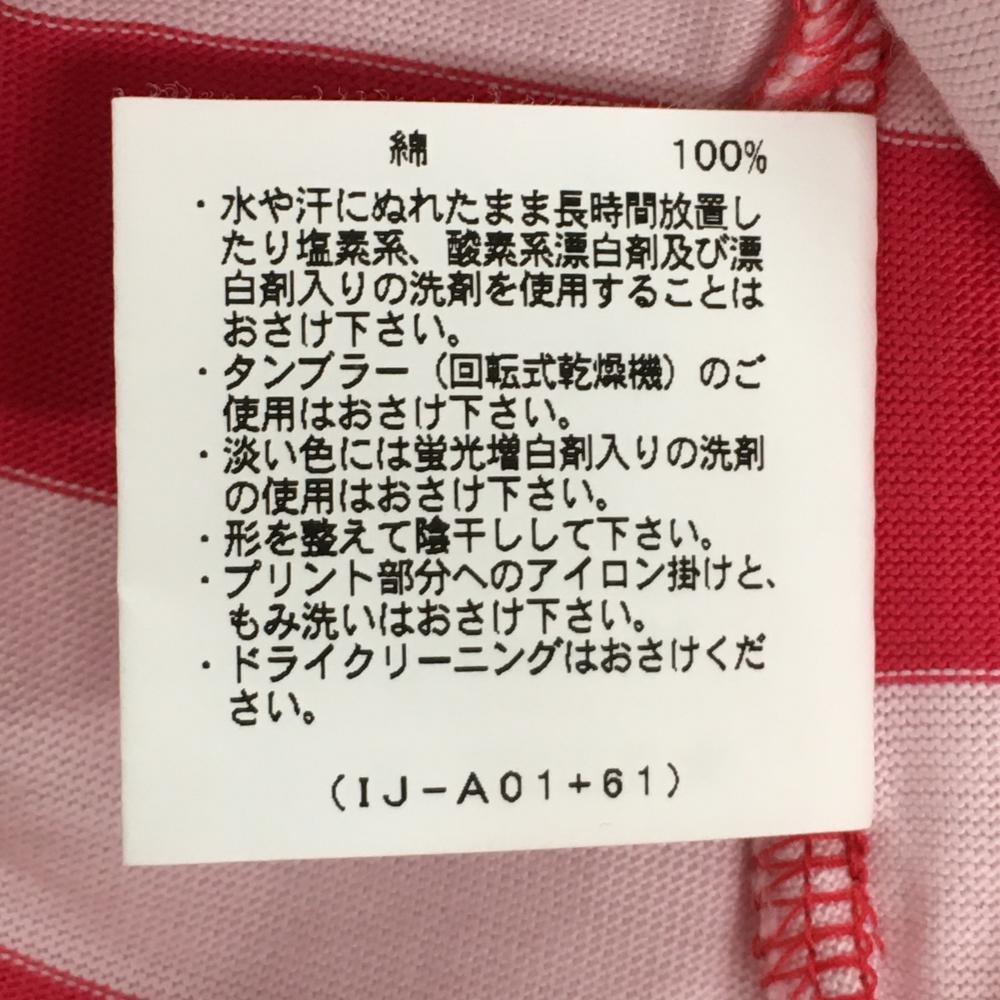 綿 100%
・水や汗にぬれたまま長時間放置し
たり塩素系、酸素系漂白剤及び漂
白剤入りの洗剤を使用することは
おさけ下さい。
・タンブラー（回転式乾燥機）のご
使用はおさけ下さい。
・淡い色には蛍光増白剤入りの洗剤
の使用はおさけ下さい。
・形を整えて陰干しして下さい。
・プリント部分へのアイロン掛けと、
もみ洗いはおさけ下さい。
・ドライクリーニングはおさけくだ
さい。
（IJ-A01+61）